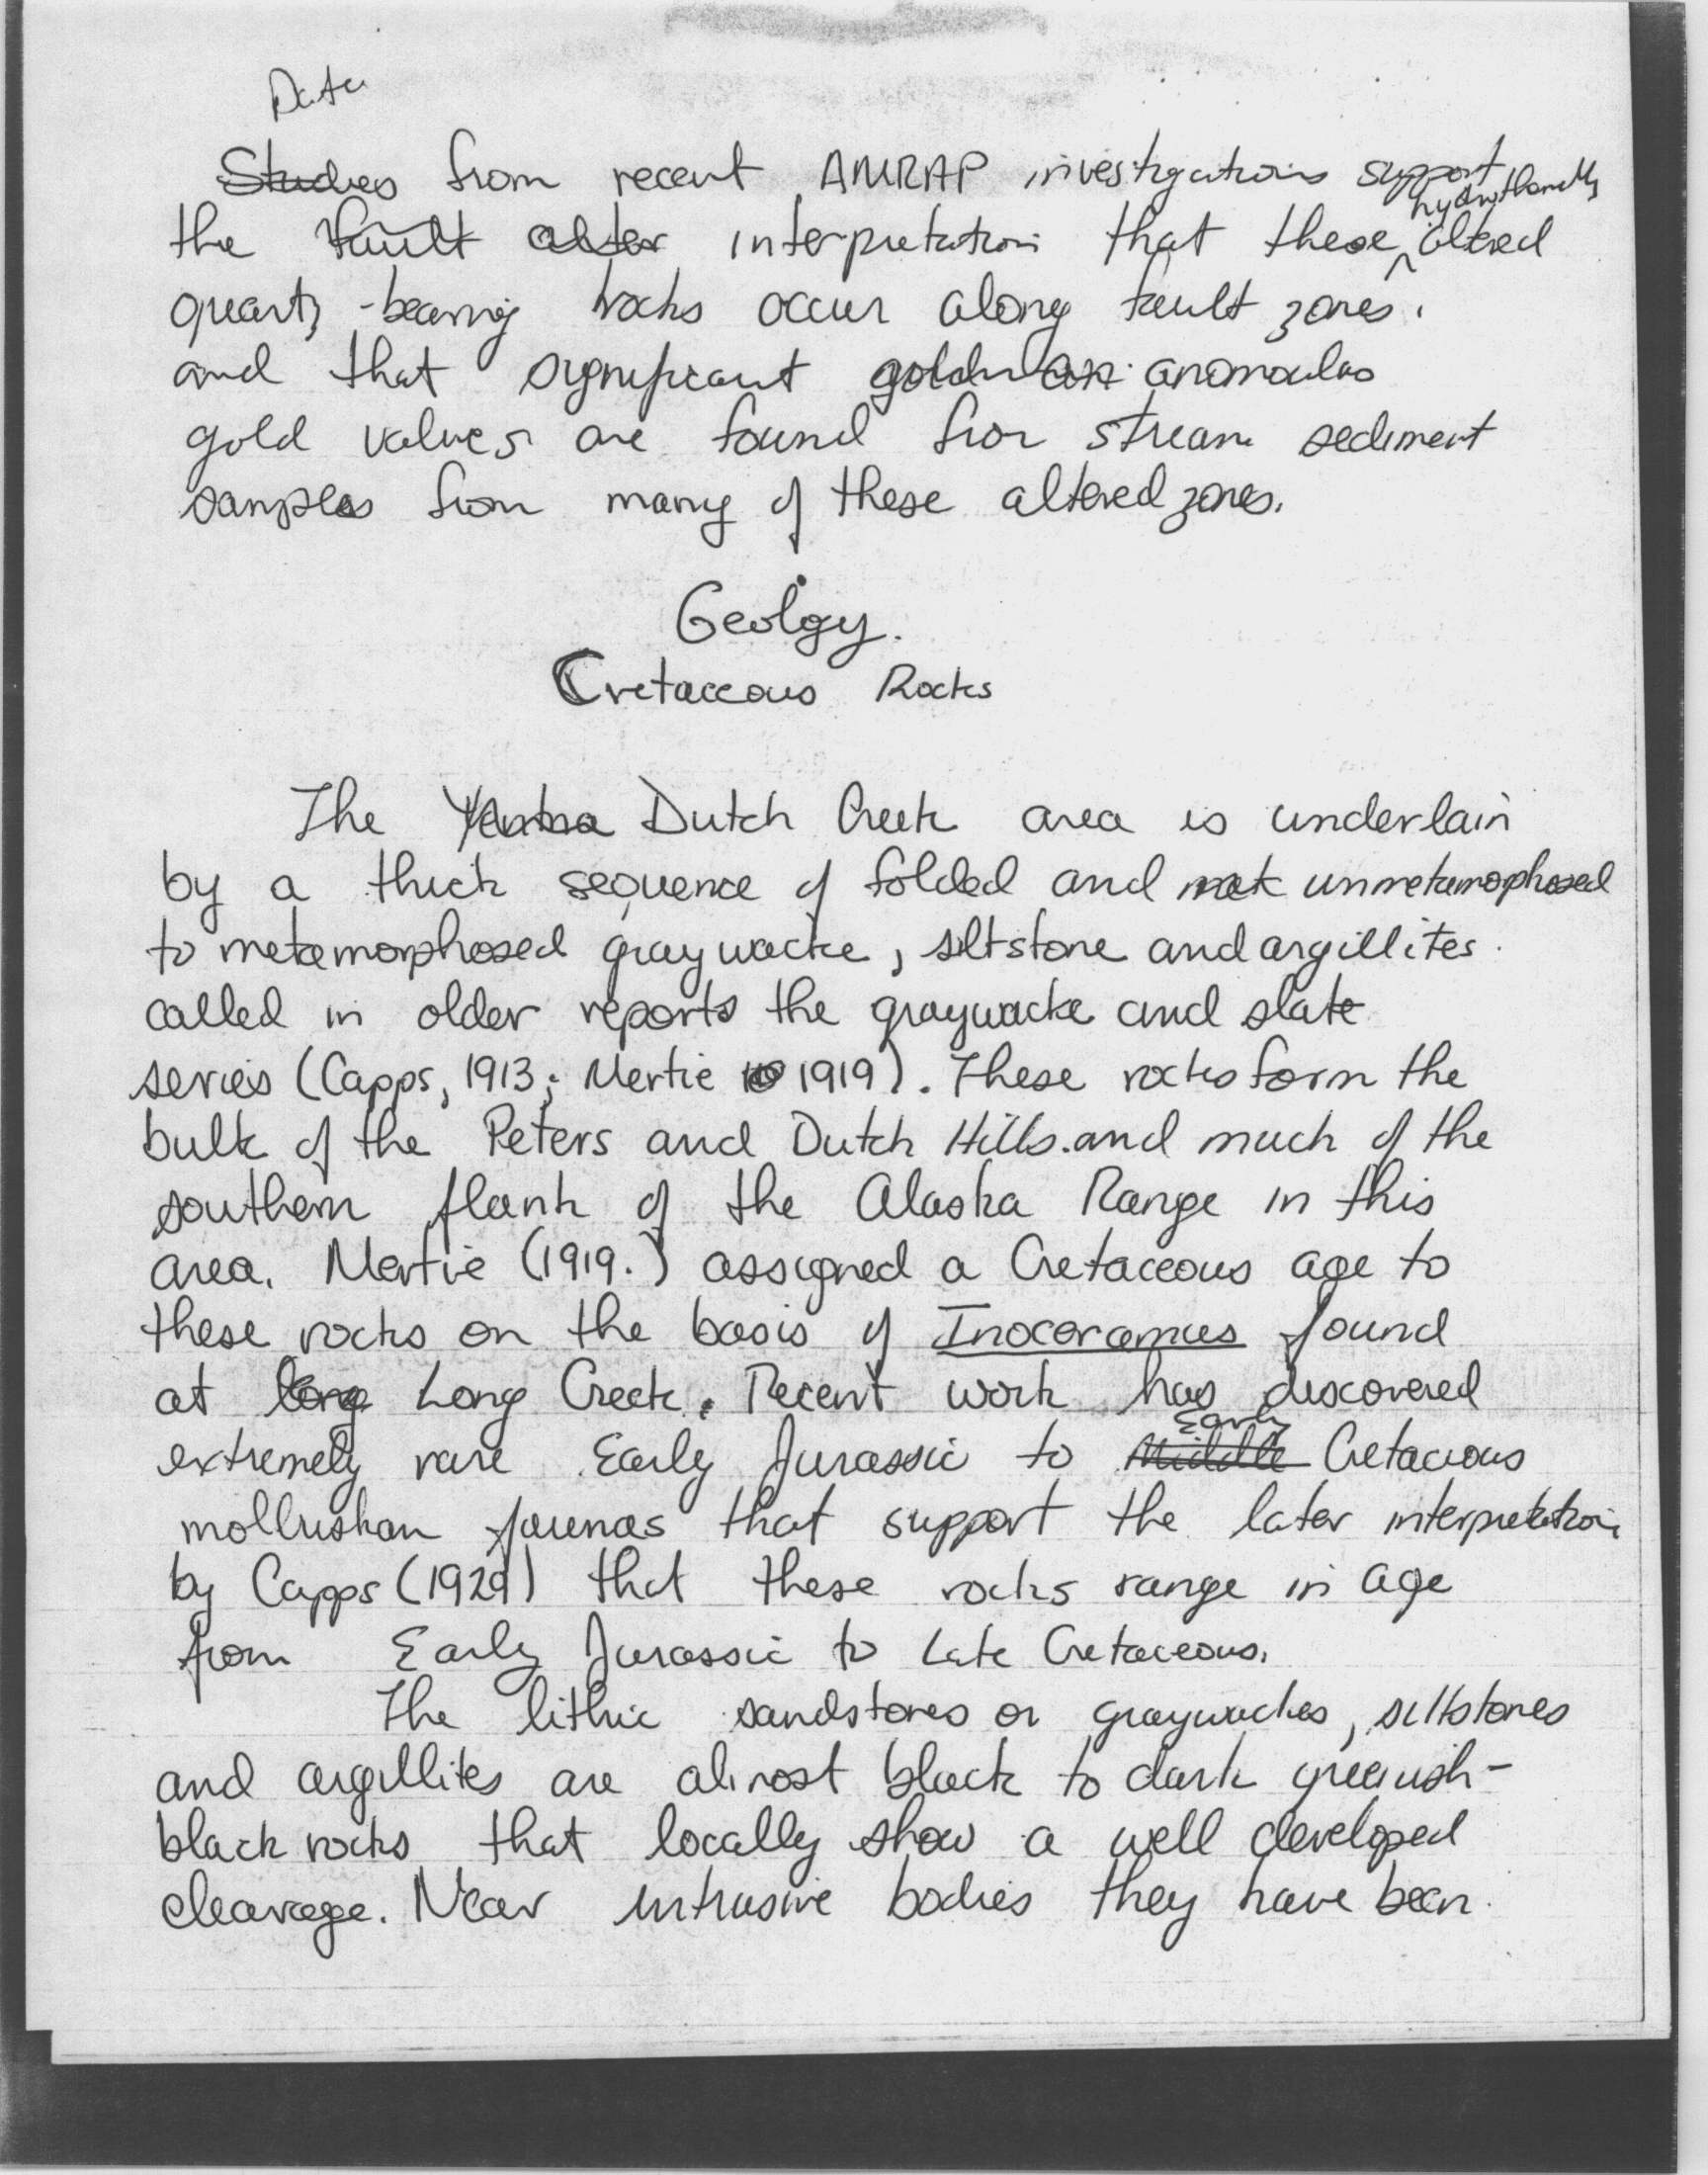 Data
Studies from recent AMRAP investigations support
hydrothermally
the fault alter interpretation that these altered
quartz-bearing rocks occur along fault zones.
and that significant gold an anomalas
gold values are found for stream sediment
samples from many of these altered zones.
Geolgy.
Cretaceous Rocks
The Yentna Dutch Creek area is underlain
by a thick sequence of folded and met unmetamophosed
to metamorphosed graywacke, siltstone and argillites
called in older reports the graywacke and slate
series (Capps, 1913; Mertie 1919). These rocks form the
bulk of the Peters and Dutch Hills. and much of the
southern flank of the Alaska Range in this
area. Mertie (1919.) assigned a Cretaceous age to
these rocks on the basis of Inoceramus found
at long Long Creek. Recent work has discovered
Early
extremely rare Early Jurassic to Middle Cretacious
molluskan faunas that support the later interpretation
by Capps (1929) that these rocks range in age
from Early Jurassic to Late Cretaceous.
The lithic sandstones or graywackes, siltstones
and argillites are almost black to dark greenish-
black rocks that locally show a well developed
cleavage. Near intrusive bodies they have been